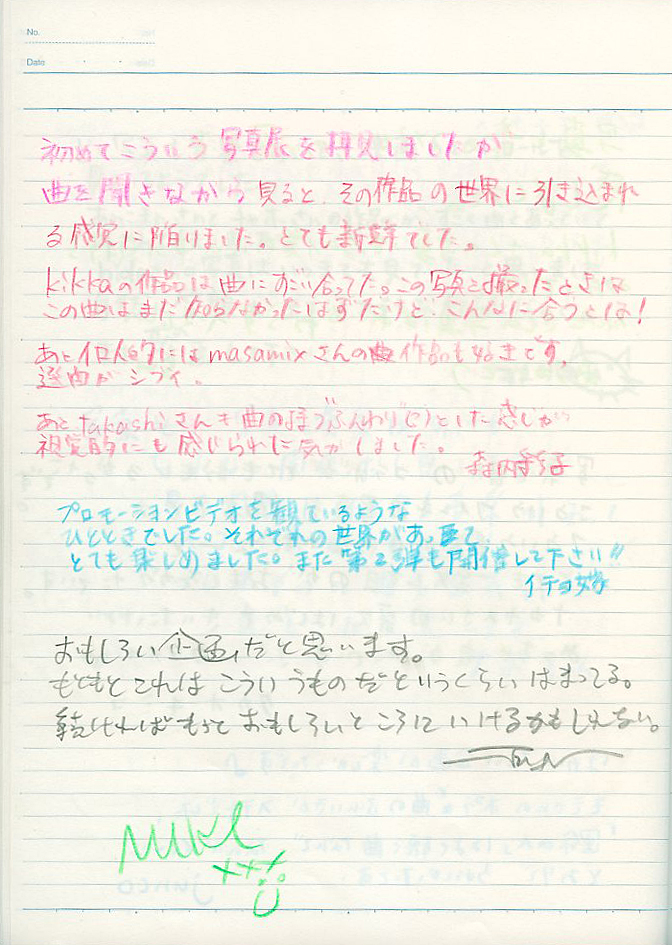 No.
Date
初めてこういう写真展を拝見しましたが
曲を聞きながら見ると、その作品の世界に引き込まれ
る感覚に陥りました。とても新鮮でした。
kikkaの作品は曲にすごい合ってた。この写真を撮ったときは
この曲はまだ知らなかったはずだけど、こんなに合うとは!
あと個人的にはmasamixさんの曲作品も好きです。
選曲がシブイ。
あと、takashiさんも曲のほうふんわり(?)とした感じが
視覚的にも感じられた気がしました。
プロモーションビデオを観ているような
ひとときでした。それぞれの世界があって、
とても楽しめました。また第2弾も開催して下さい!!
おもしろい企画だと思います。
もともとこれはこういうものだというくらいはまってる。
続ければもっとおもしろいところにいけるかもしれない。